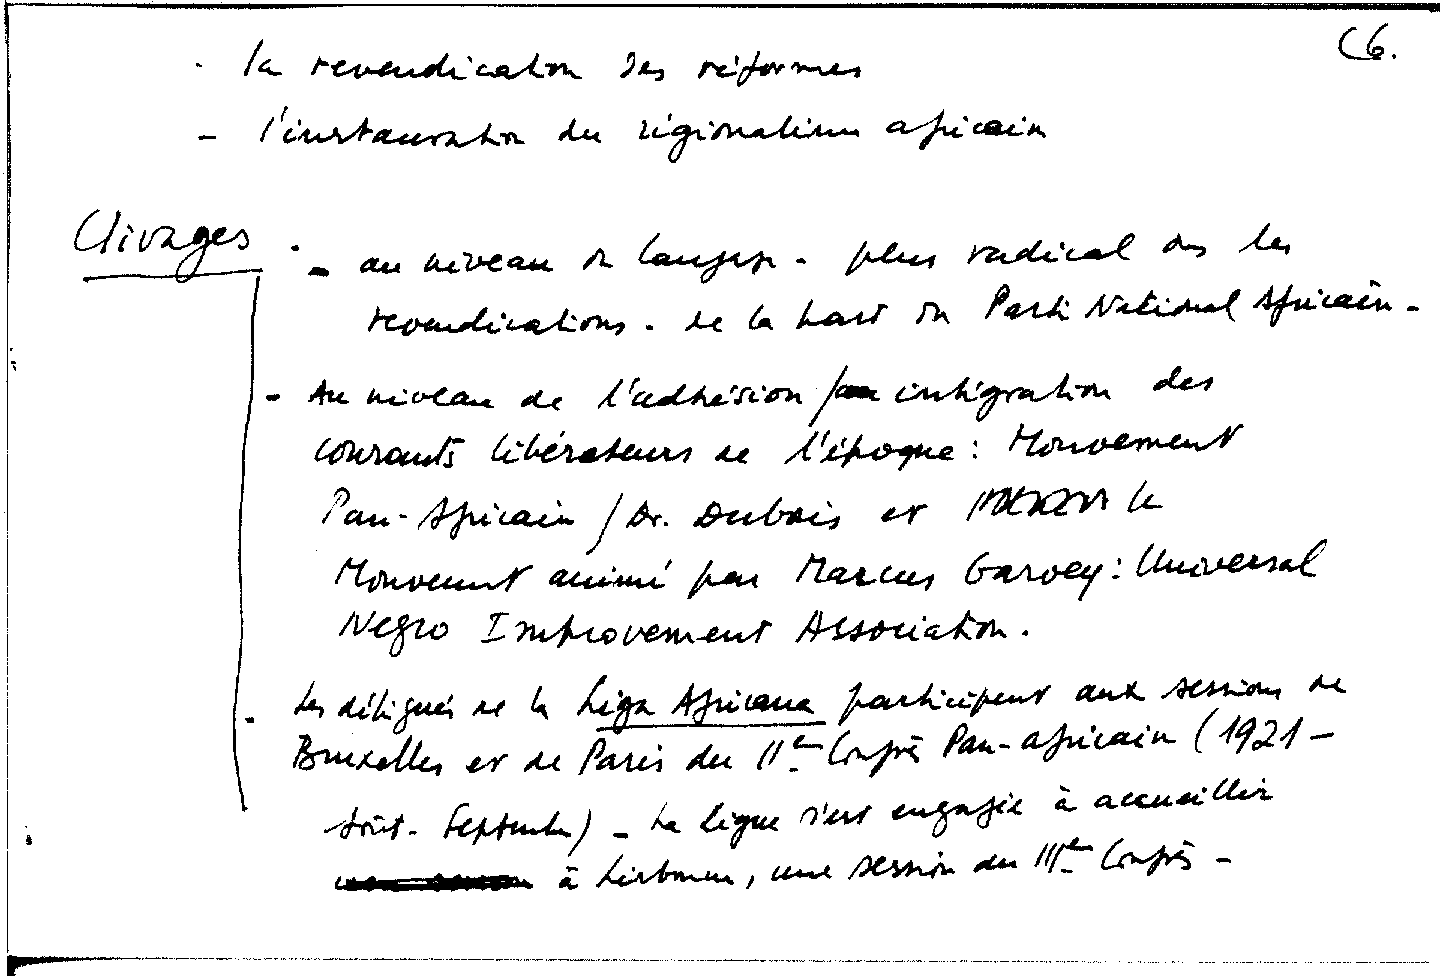 C6.
- la revendication des réformes
- l'instauration du régionalisme africain
Clivages - au niveau du langage - plus radical dans les
revendications - de la part du Parti National Africain -
- Au niveau de l'adhésion / intégration des
courants libérateurs de l'époque : Mouvement
Pan-Africain / Dr. Dubois et le
Mouvement animé par Marcus Garvey : Universal
Negro Improvement Association.
- Les délégués de la Liga Africana participent aux sessions de
Bruxelles et de Paris du IIème Congrès Pan-africain (1921 -
Août - Septembre) - La Ligue s'est engagée à accueillir
à Lisbonne, une session du IIIème Congrès -